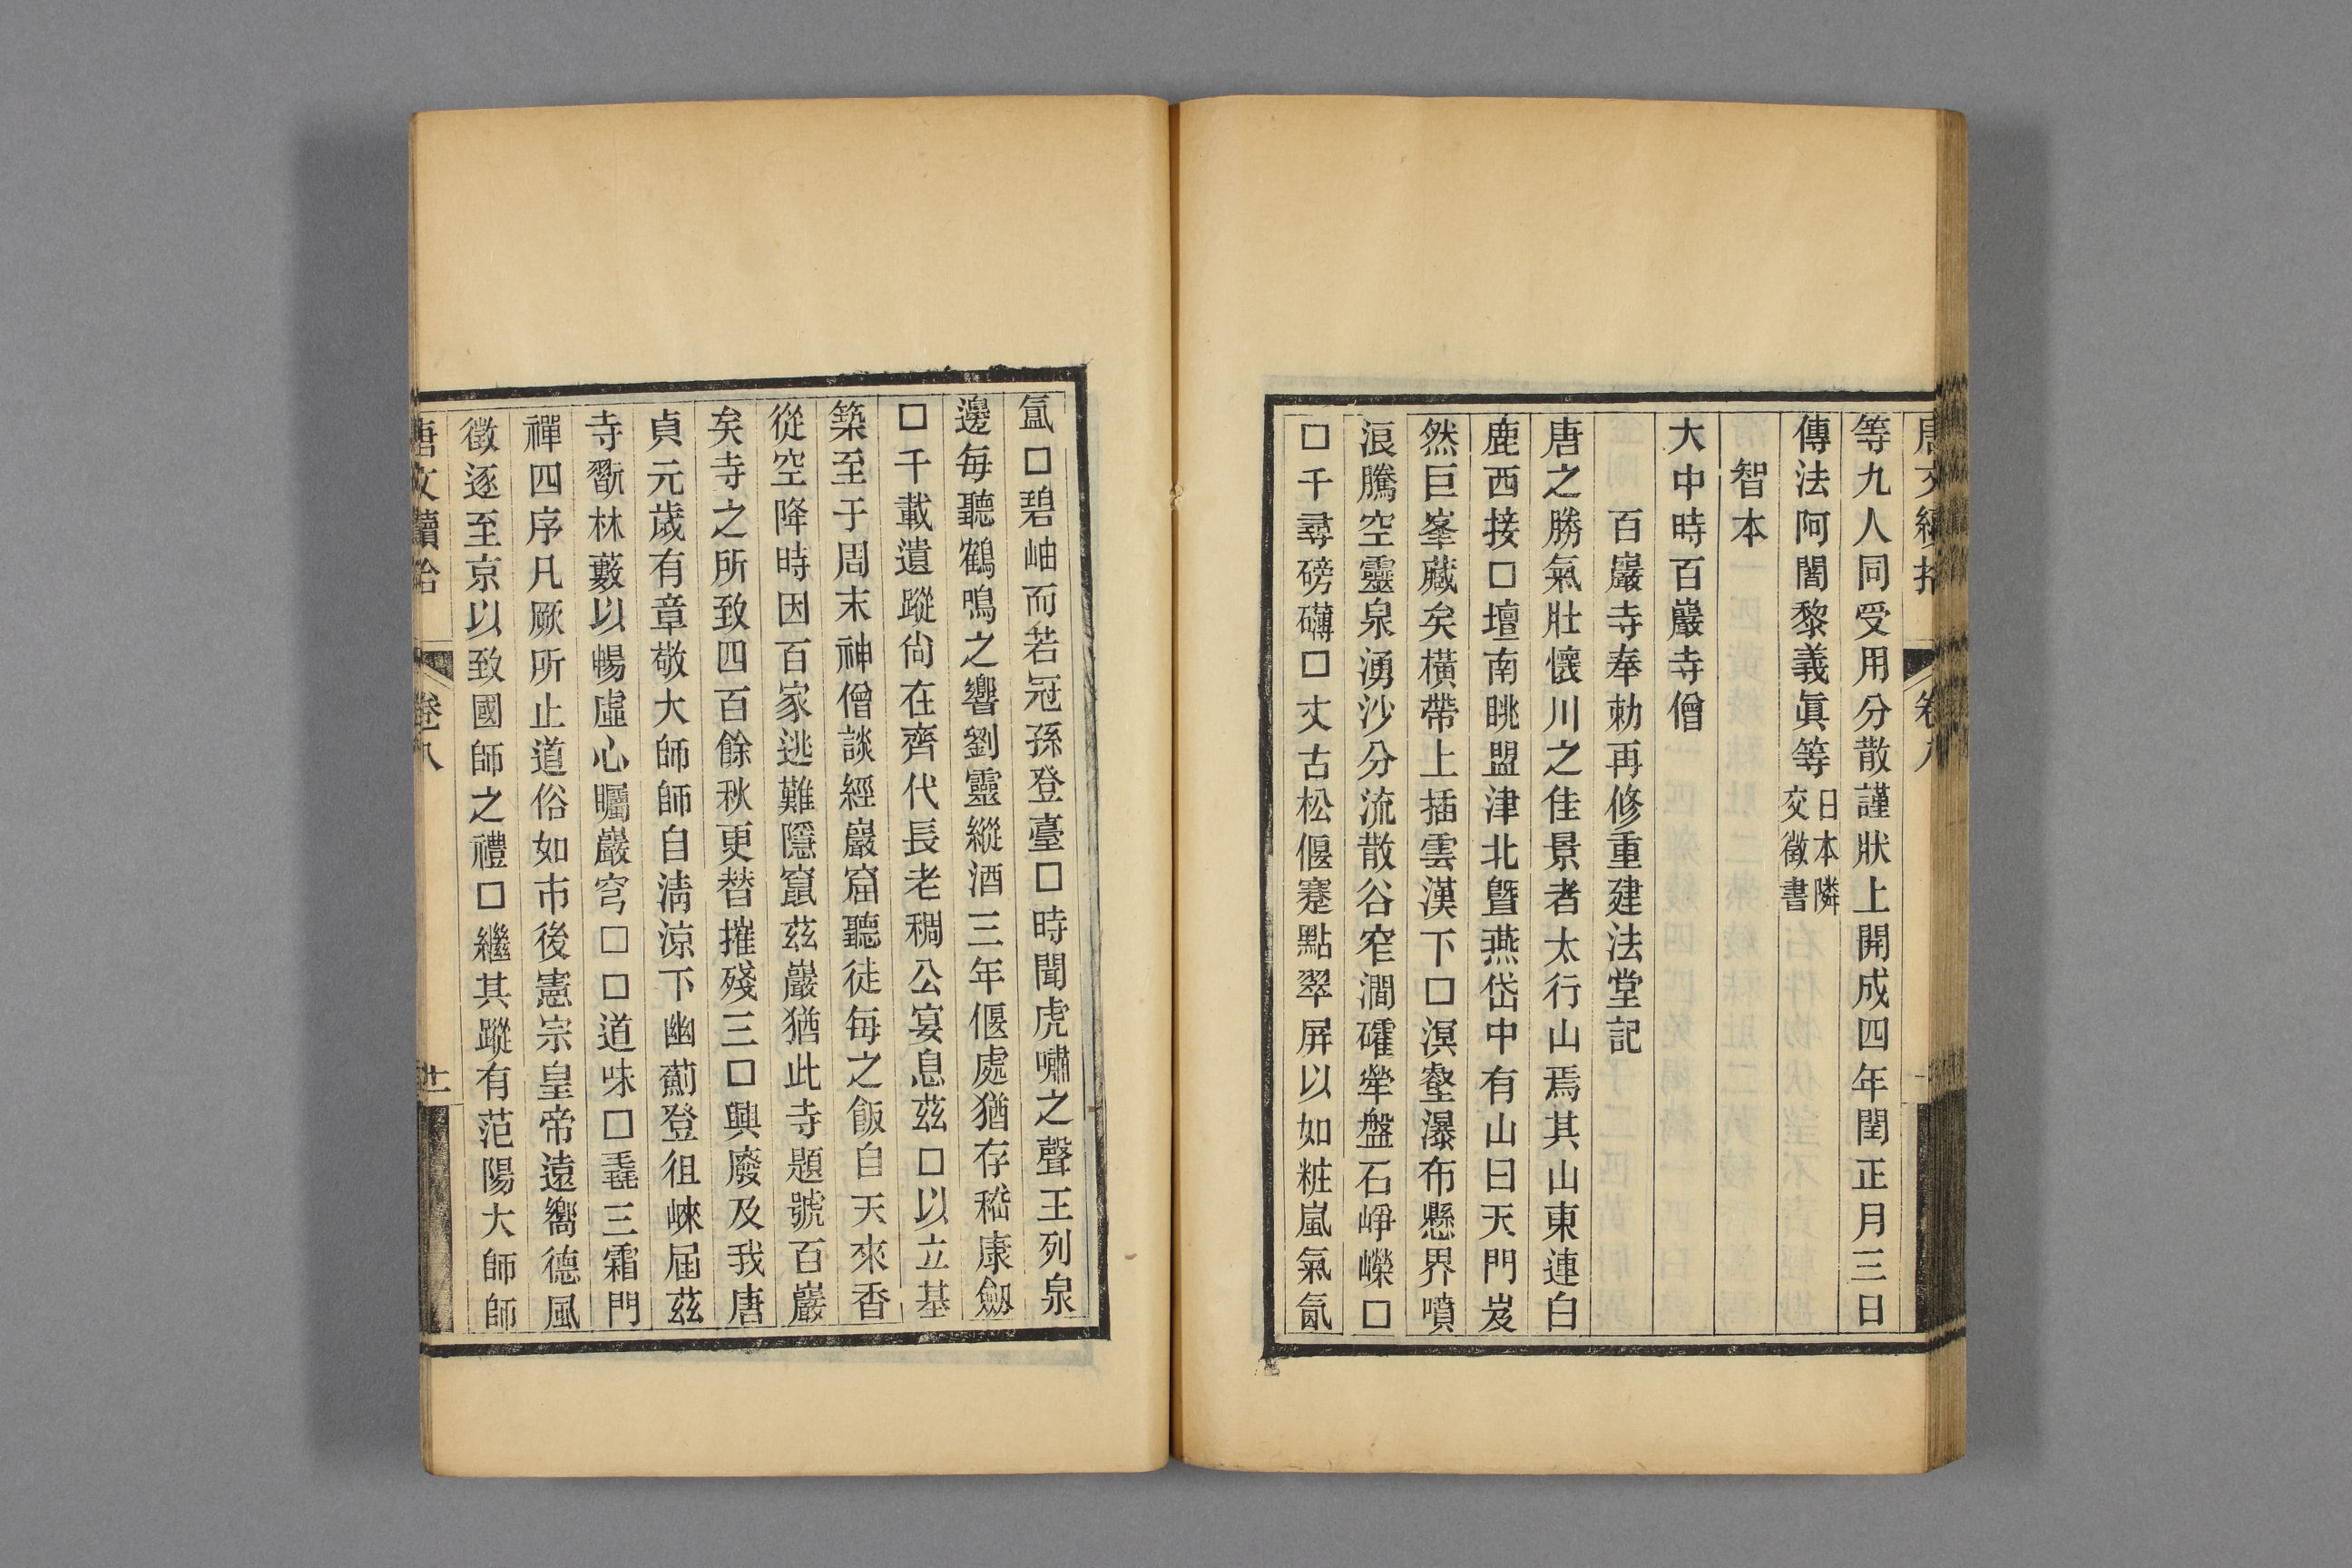 等九人同受用分散謹狀上開成四年閏正月三日
傳法阿闍黎義眞等日本隣交徵書
智本
大中時百巖寺僧
百巖寺奉勅再修重建法堂記
唐之勝氣壯懷川之佳景者太行山焉其山東連白
鹿西接□壇南眺盟津北曁燕岱中有山曰天門岌
然巨峯藏矣橫帶上插雲漢下□溟壑瀑布懸界噴
浪騰空靈泉湧沙分流散谷窄澗礭犖盤石崢嶸□
□千尋磅礴□丈古松偃蹇點翠屏以如粧嵐氣氤
氳□碧岫而若冠孫登臺□時聞虎嘯之聲王列泉
邊每聽鶴鳴之響劉靈縱酒三年偃處猶存嵇康劔
□千載遺蹤尙在齊代長老稠公宴息茲□以立基
築至于周末神僧談經巖窟聽徒每之飯自天來香
從空降時因百家逃難隱竄茲巖猶此寺題號百巖
矣寺之所致四百餘秋更替摧殘三□興廢及我唐
貞元歲有章敬大師師自淸涼下幽薊登徂崍屆茲
寺斸林藪以暢虛心矚巖穹□□道味□毳三霜門
禪四序凡厥所止道俗如市後憲宗皇帝遠嚮德風
徵逐至京以致國師之禮□繼其蹤有范陽大師師
唐文續拾
卷八